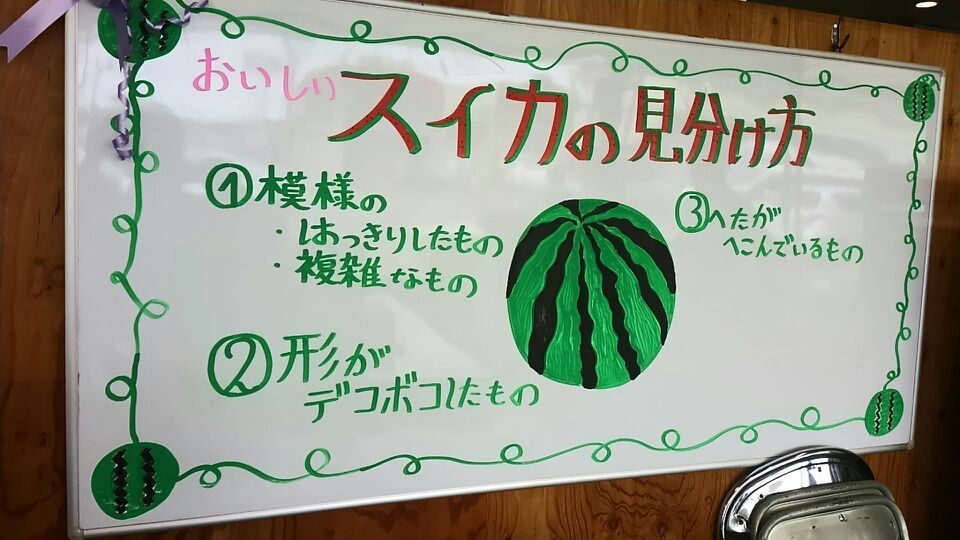 おいしいスイカの見分け方
①模様の
・はっきりしたもの
・複雑なもの
②形が
デコボコしたもの
③へたが
へこんでいるもの